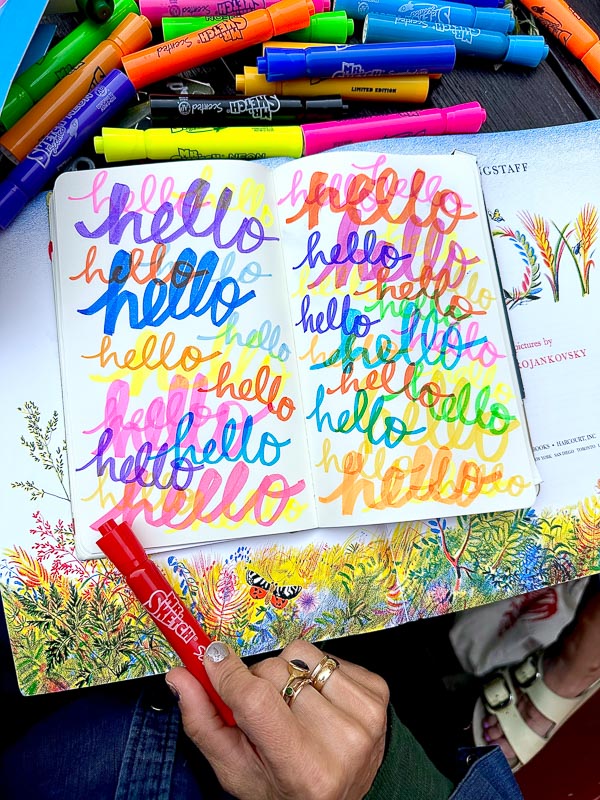 Scented
MR. SKETCH
Scented
MR. SKETCH
LIMITED EDITION
MR. SKETCH Scented
NGSTAFF
hello hello
hello
hello hello
hello
hello
hello
hello
hello
hello
hello
hello
hello
hello
hello hello
hello
hello
hello
hello
hello
hello
hello
hello
hello
hello
hello
hello
hello
hello
pictures by
OJANKOVSKY
OOKS • HARCOURT, INC
SAN DIEGO TORONTO
MR. SKETCH